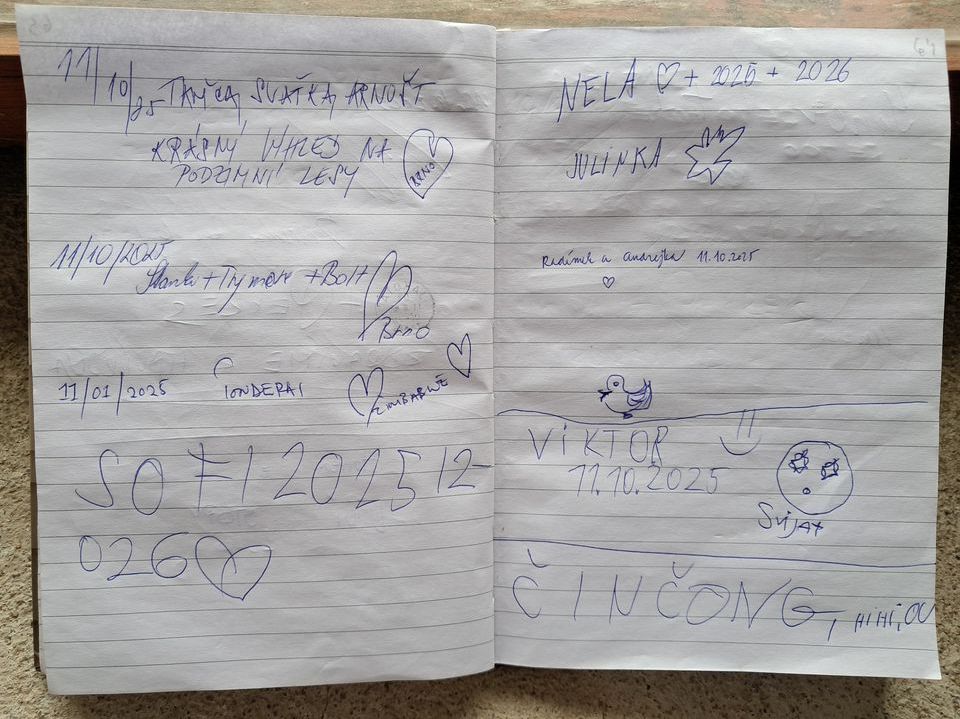 11/10/25 TANČA, SVAŤKA, ARNOŠT
KRÁSNÝ VÝHLED NA
PODZIMNÍ LESY
BRNO
11/10/2025
+ Tymek + Bolt
Brno
11/01/2025 TONDERAI
ZIMBABWE
SOFI 2025 12
026
NELA + 2025 + 2026
JULINKA
Radimek a Andrejka 11.10.2025
VIKTOR
11.10.2025
Svijax
ČINČONG, HIHI, OU